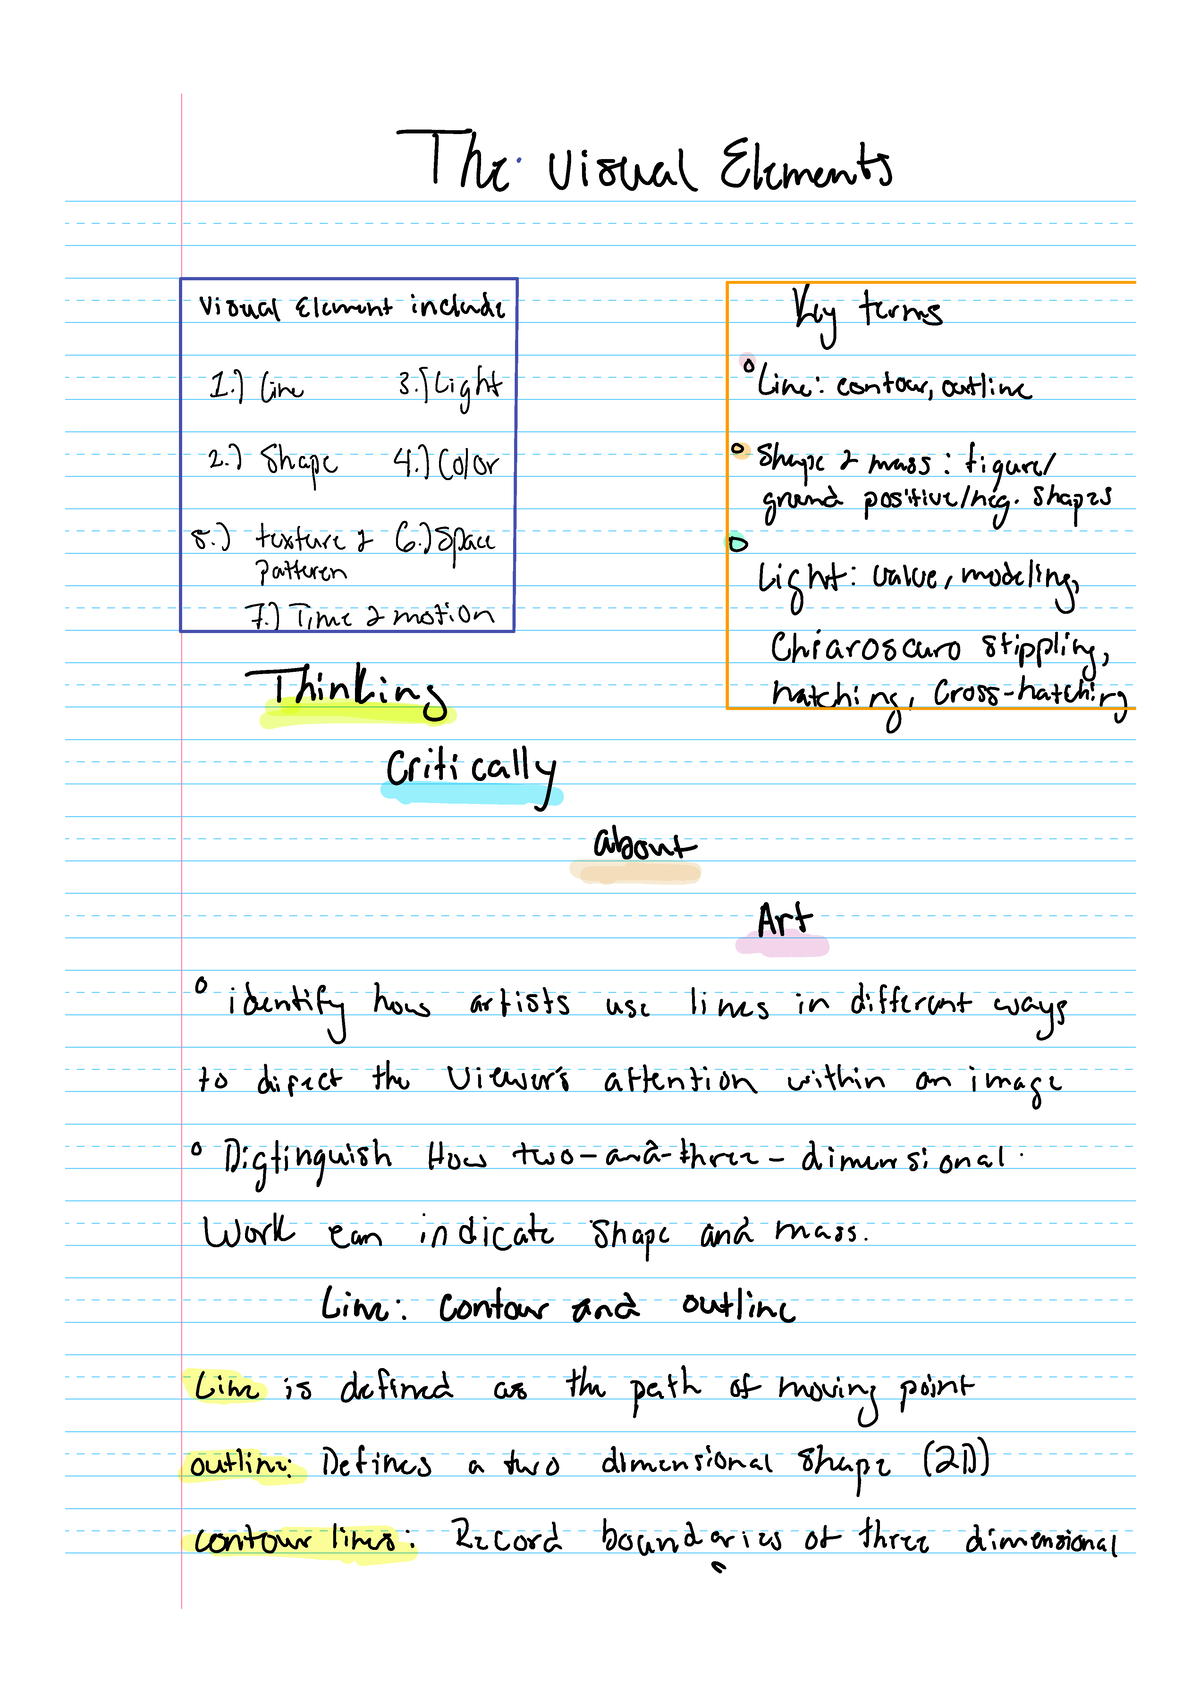 The Visual Elements
Visual Element include
1.) Line 3.) Light
2.) Shape 4.) Color
5.) texture & 6.) Space
Patteren
7.) Time & motion
Key terms
Line: contour, outline
Shape & mass: figure/
ground positive/neg. shapes
Light: value, modeling,
Chiaroscuro stippling,
hatching, Cross-hatching
Thinking
Critically
about
Art
identify how artists use lines in different ways
to direct the Viewer's attention within an image
Distinguish How two-and-three-dimensional
Work can indicate shape and mass.
Line: contour and outline
Line is defined as the path of moving point
outline: Defines a two dimensional shape (2D)
contour lines: Record boundaries of three dimensional